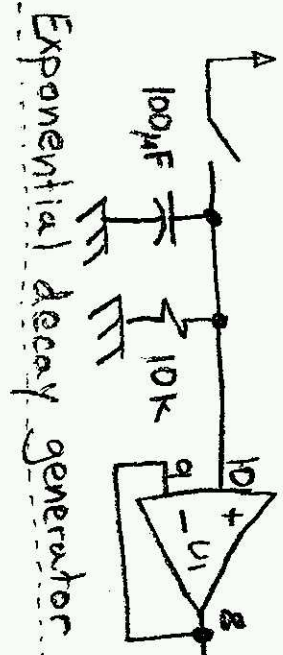 100µF
10K
10
9
+
-
U1
8
Exponential decay generator